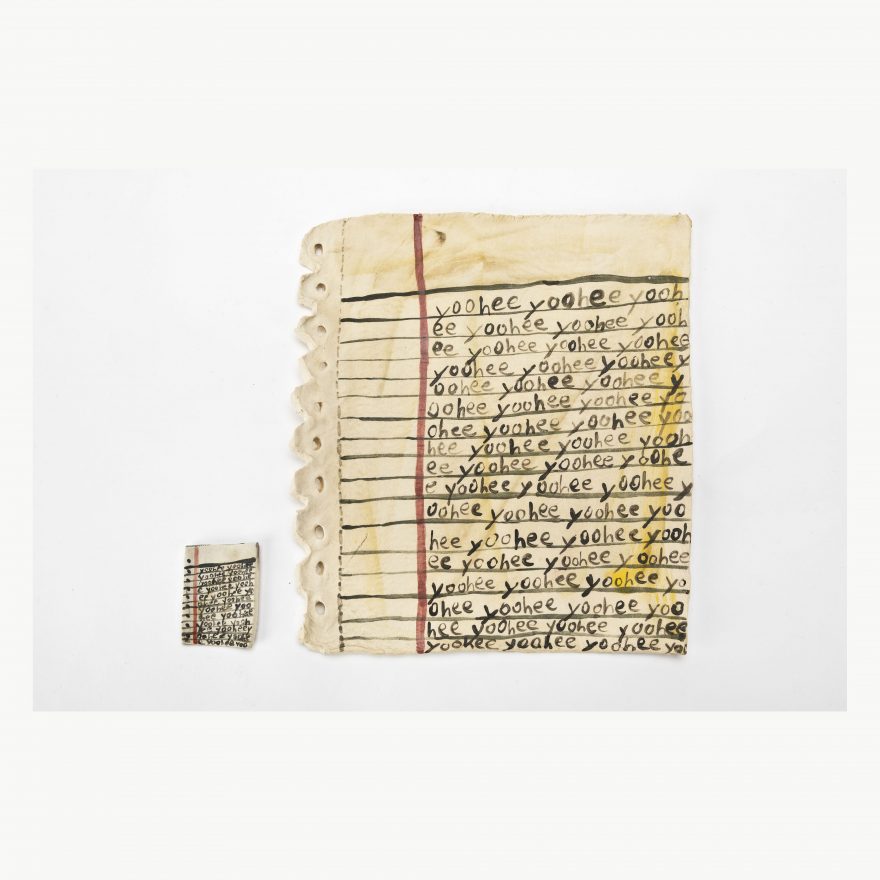 yoohee yoohee yooh
ee yoohee yoohee yooh
ee yoohee yoohee yoohee
yoohee yoohee yoohee y
oohee yoohee yoohee y
oohee yoohee yoohee yo
ohee yoohee yoohee yoo
hee yoohee yoohee yooh
ee yoohee yoohee yoohe
e yoohee yoohee yoohee y
oohee yoohee yoohee yoo
hee yoohee yoohee yooh
ee yoohee yoohee yoohee
yoohee yoohee yoohee yo
ohee yoohee yoohee yoo
hee yoohee yoohee yoohee
yoohee yoohee yoohee yoo
yoohee yoohee